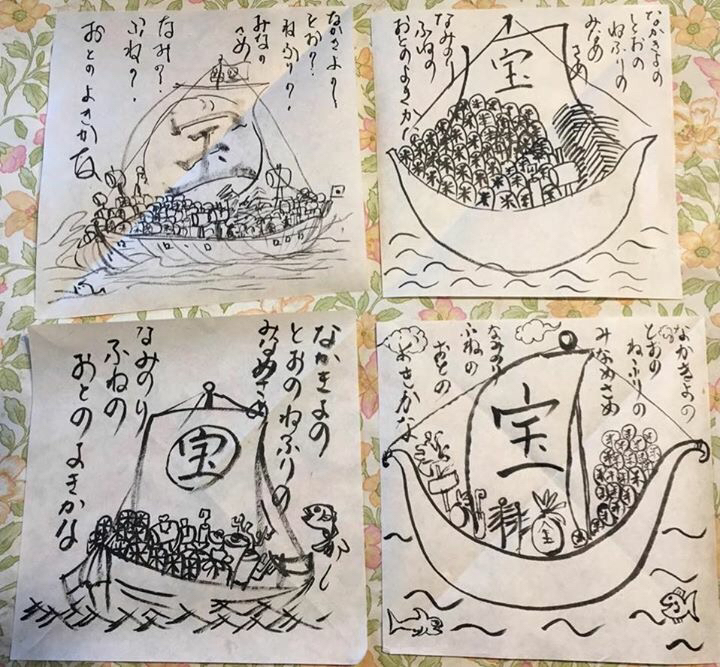 なかきよの
とおの
ねふりの
みなの
さめ
なみの
ふねの
おとのよきかな
宝
なかきよの
とおの
ねふりの
みなめ
さめ
なみのり
ふねの
おとのよきかな
宝
なかきよの
とおのねふりの
みなめさめ
なみのり
ふねの
おとのよきかな
宝
なかきよの
とおの
ねふりの
みなめさめ
なみのり
ふねの
おとの
よきかな
宝
宝